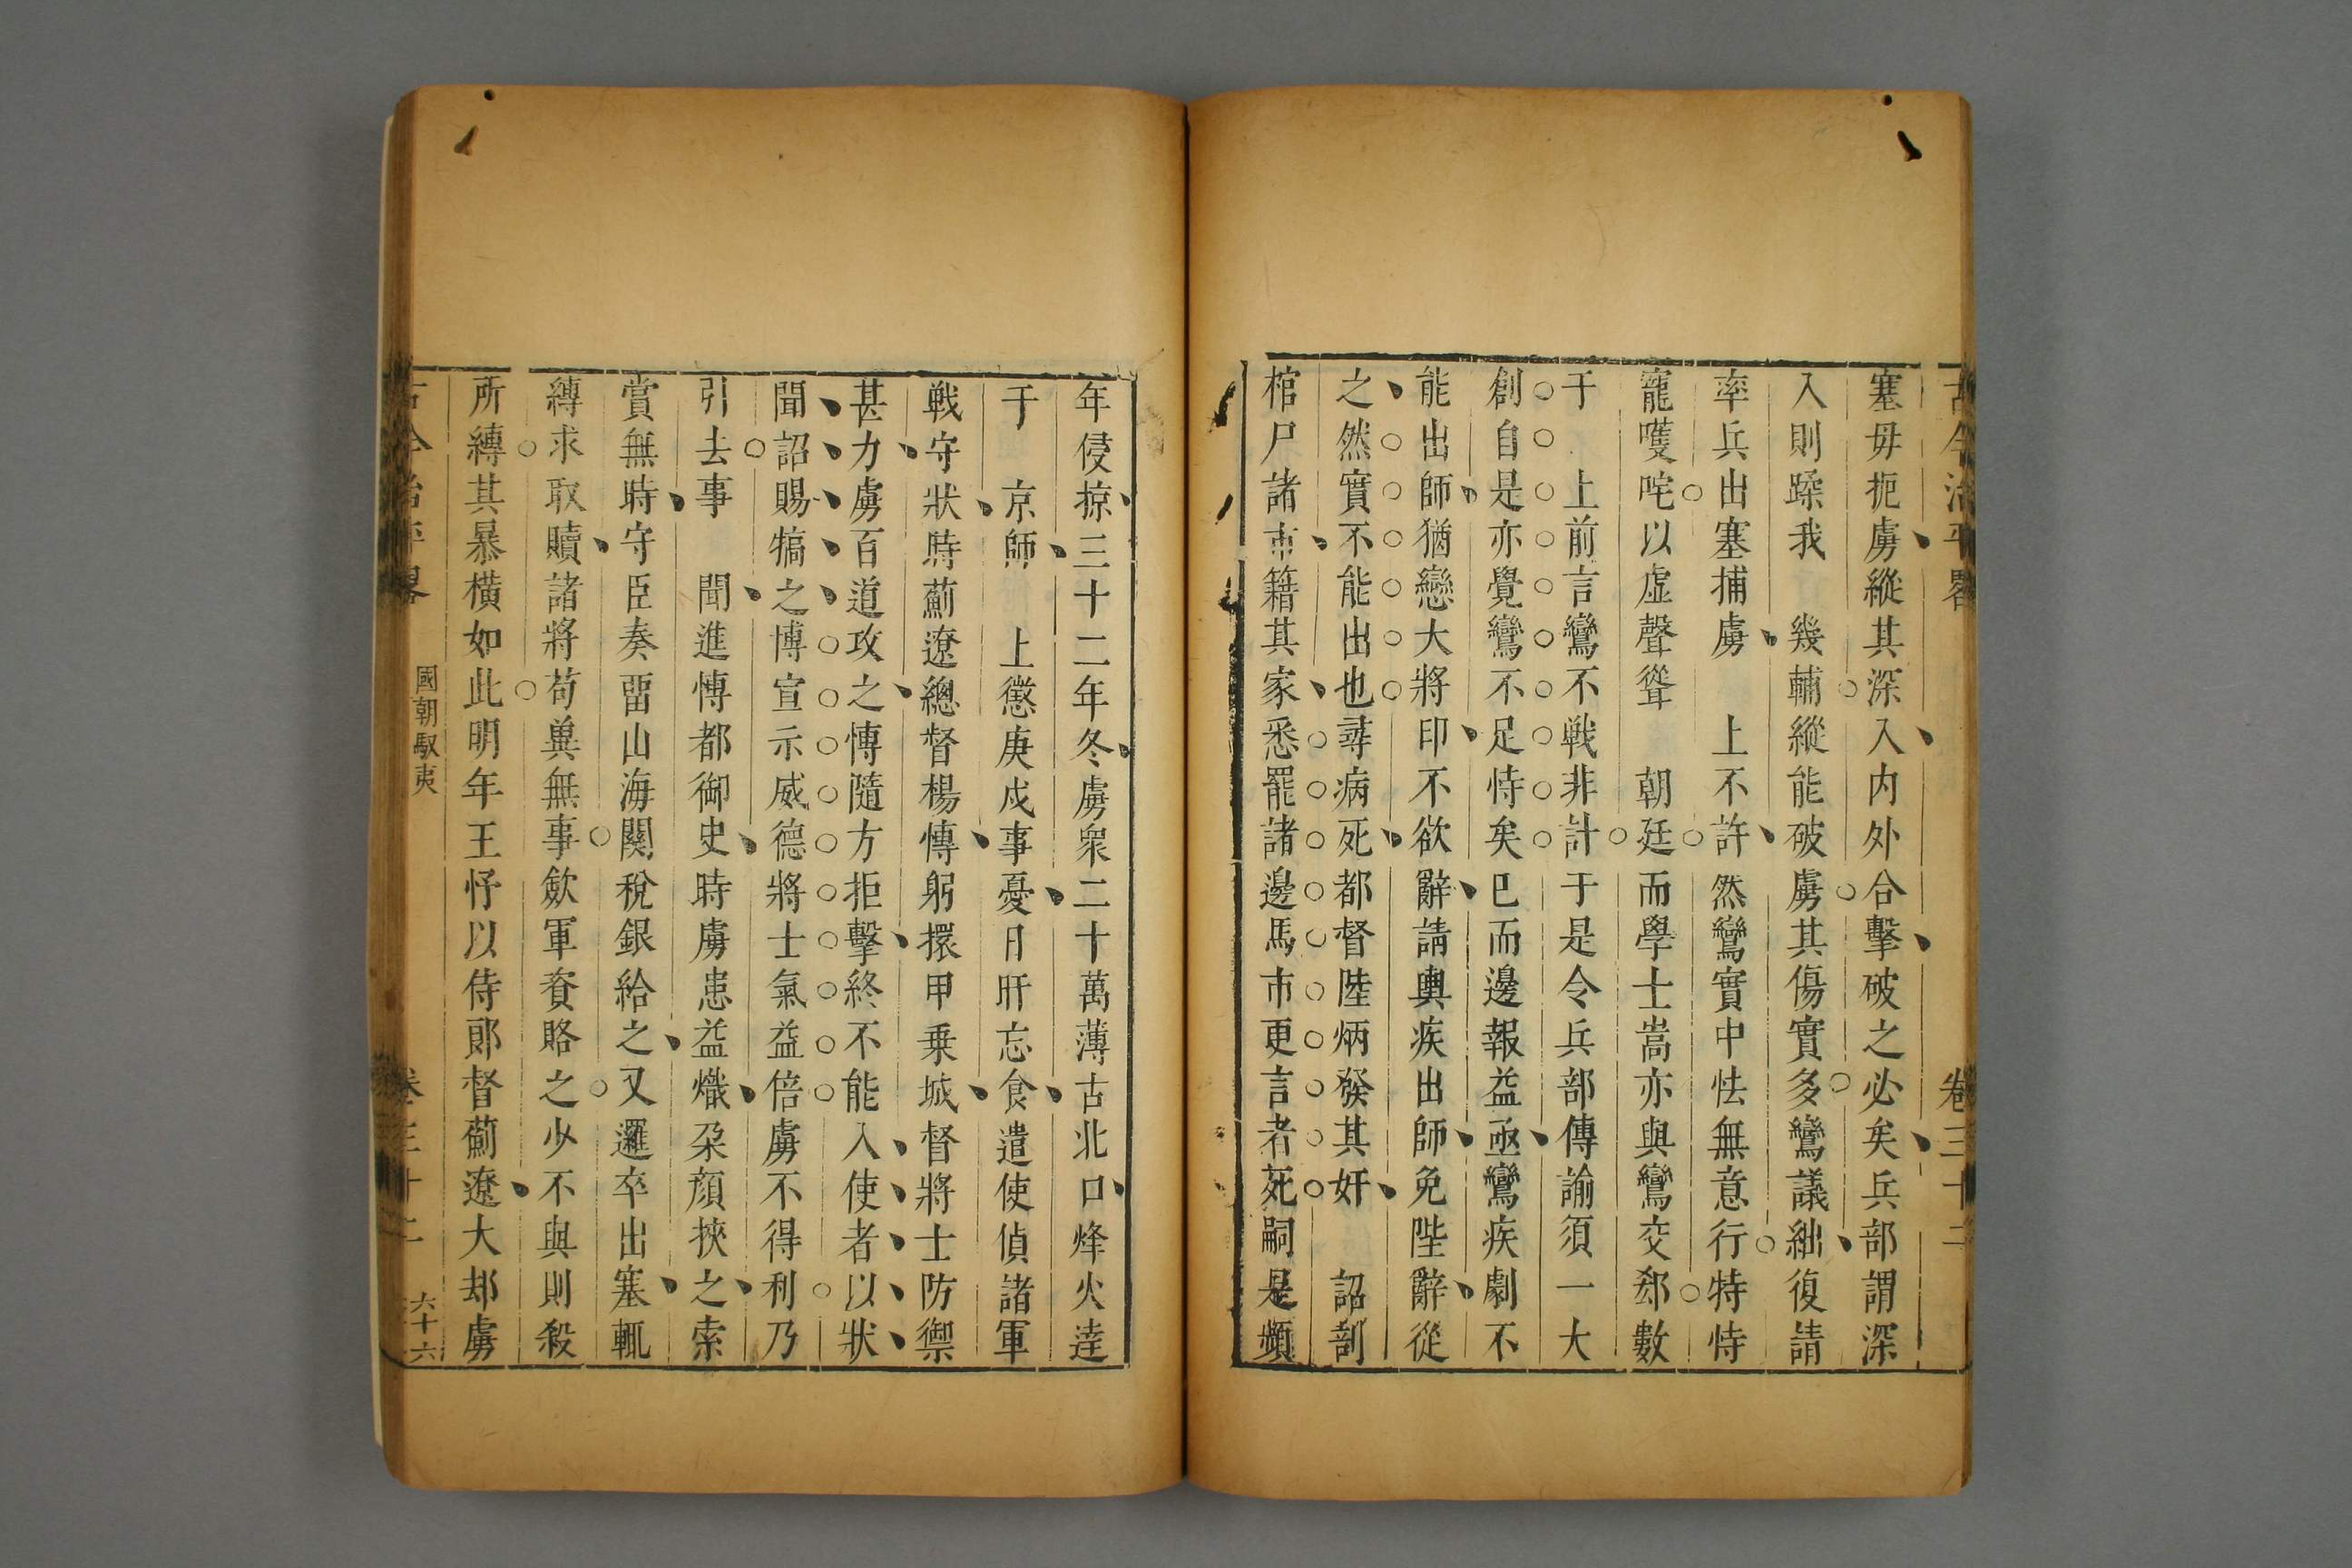 古今治平畧 卷三十二
塞毋扼虜縱其深入内外合擊破之必矣兵部謂深
入則蹂我 幾輔縱能破虜其傷實多鸞議絀復請
率兵出塞捕虜 上不許然鸞實中怯無意行特恃
寵嚄咤以虛聲聳 朝廷而學士嵩亦與鸞交郄數
于 上前言鸞不戰非計于是令兵部傳諭須一大
創自是亦覺鸞不足恃矣已而邊報益亟鸞疾劇不
能出師猶戀大將印不欲辭請輿疾出師免陛辭從
之然實不能出也尋病死都督陸炳發其奸 詔剖
棺尸諸市籍其家悉罷諸邊馬市更言者死嗣是頻
年侵掠三十二年冬虜衆二十萬薄古北口烽火達
于 京師 上懲庚戌事憂日旰忘食遣使偵諸軍
戰守狀時薊遼總督楊愽躬擐甲乗城督將士防禦
甚力虜百道攻之愽隨方拒擊終不能入使者以狀
聞詔賜犒之博宣示威德將士氣益倍虜不得利乃
引去事 聞進愽都御史時虜患益熾朶顔挾之索
賞無時守臣奏畱山海關稅銀給之又邏卒出塞輒
縛求取贖諸將苟兾無事歛軍資賂之少不與則殺
所縛其暴橫如此明年王忬以侍郎督薊遼大却虜
古今治平畧 國朝馭夷 卷三十二 六十六